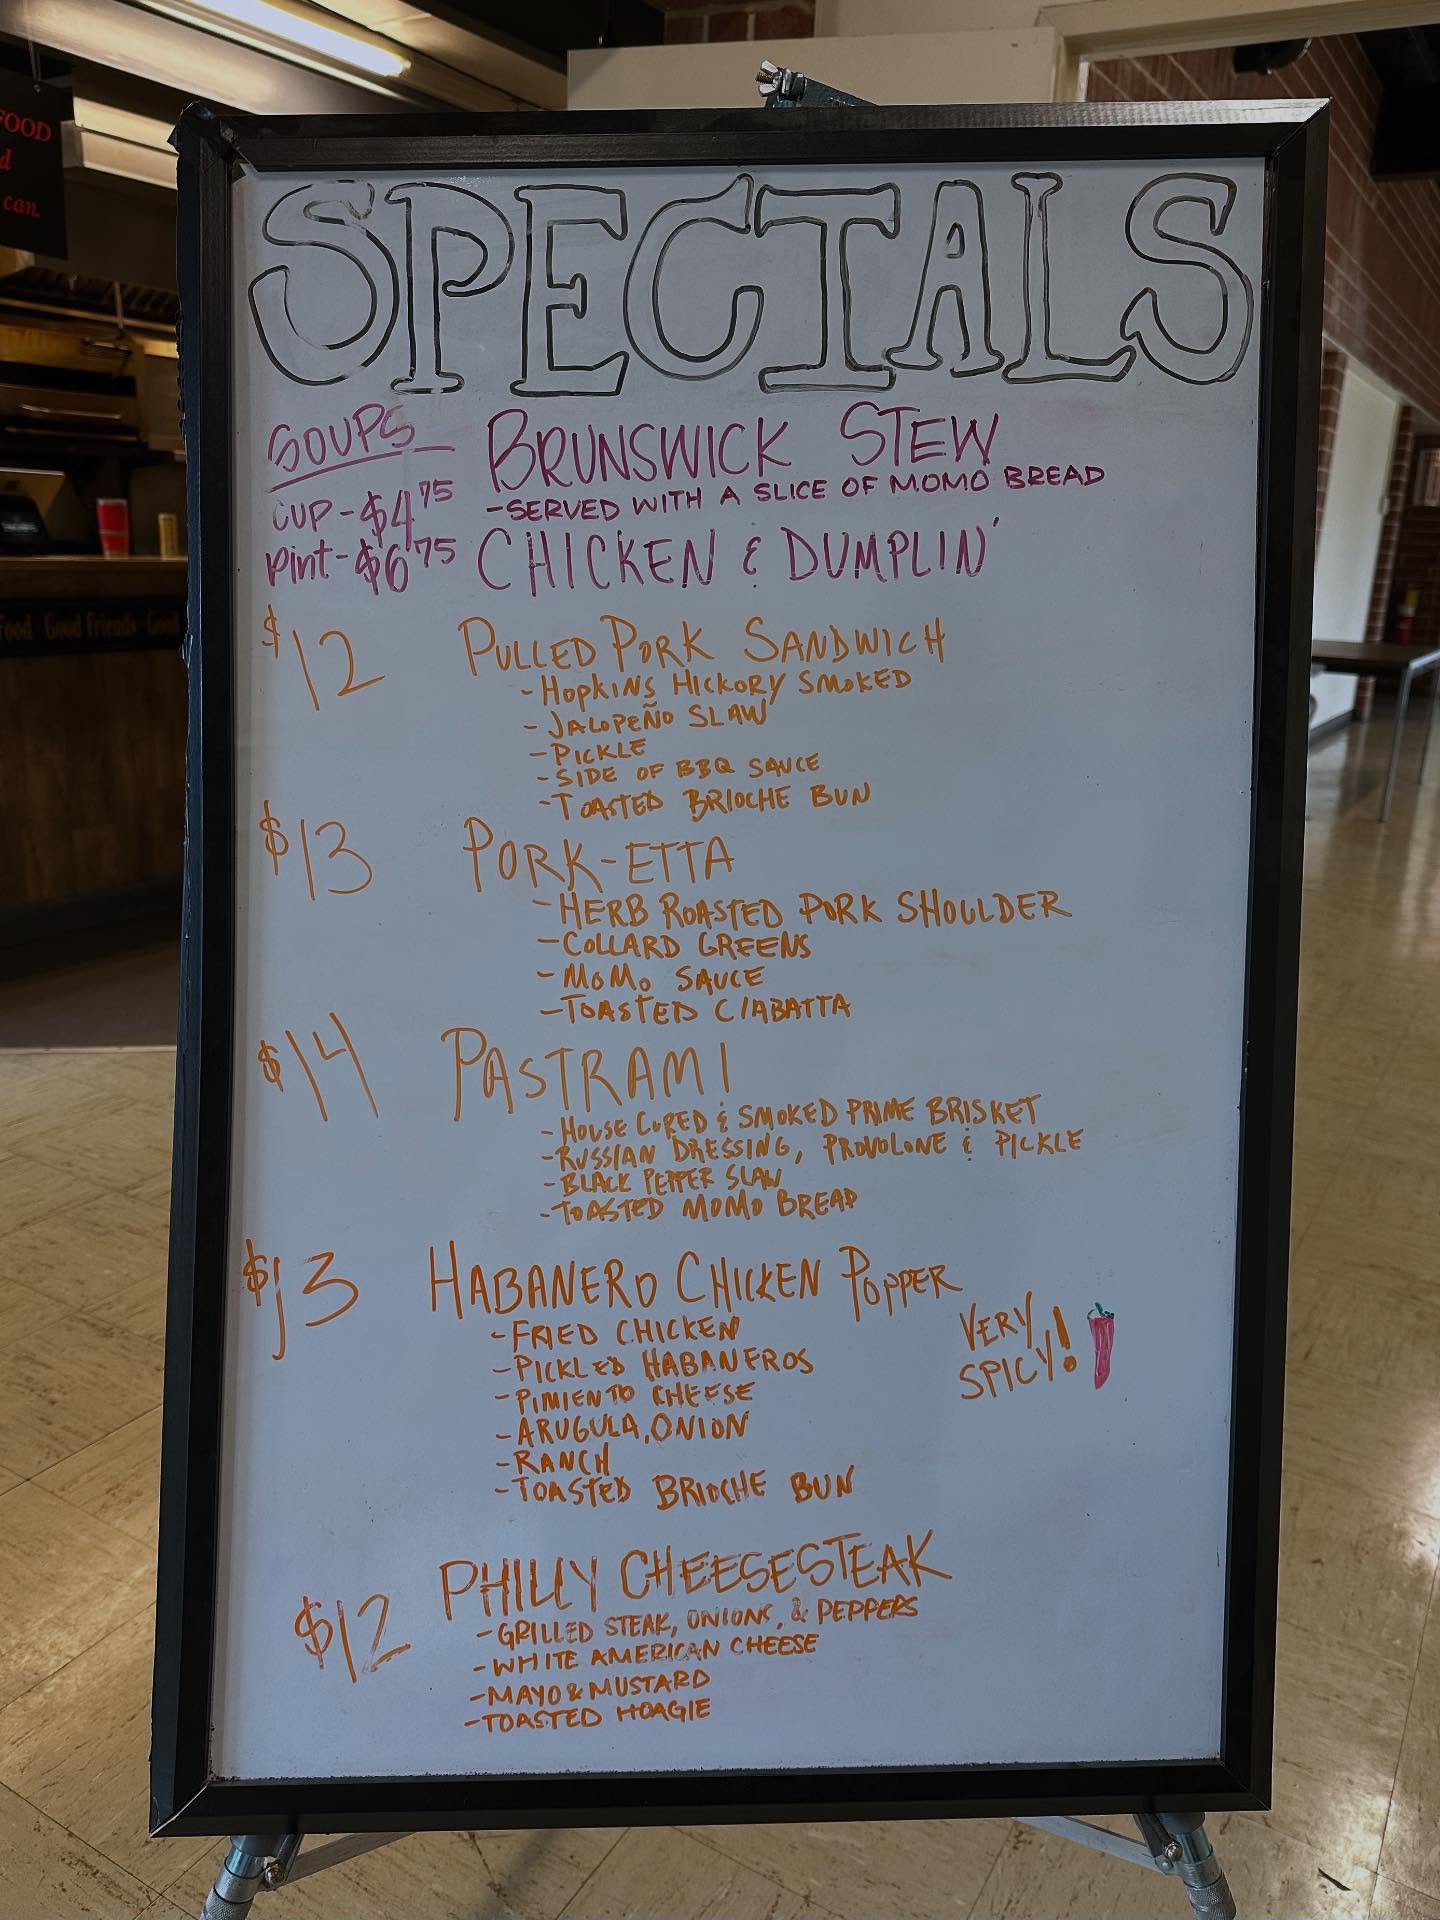 FOOD
d
can.
Food Good Friends Good
SPECIALS
SOUPS
CUP - $4.75
Pint - $6.75
BRUNSWICK STEW
- SERVED WITH A SLICE OF MOMO BREAD
CHICKEN & DUMPLIN'
$12 PULLED PORK SANDWICH
- HOPKINS HICKORY SMOKED
- JALOPEÑO SLAW
- PICKLE
- SIDE OF BBQ SAUCE
- TOASTED BRIOCHE BUN
$13 PORK-ETTA
- HERB ROASTED PORK SHOULDER
- COLLARD GREENS
- MOMO SAUCE
- TOASTED CIABATTA
$14 PASTRAMI
- HOUSE CURED & SMOKED PRIME BRISKET
- RUSSIAN DRESSING, PROVOLONE & PICKLE
- BLACK PEPPER SLAW
- TOASTED MOMO BREAD
$13 HABANERO CHICKEN POPPER
- FRIED CHICKEN
- PICKLED HABANEROS
- PIMIENTO CHEESE
- ARUGULA, ONION
- RANCH
- TOASTED BRIOCHE BUN
VERY
SPICY!
$12 PHILLY CHEESESTEAK
- GRILLED STEAK, ONIONS, & PEPPERS
- WHITE AMERICAN CHEESE
- MAYO & MUSTARD
- TOASTED HOAGIE